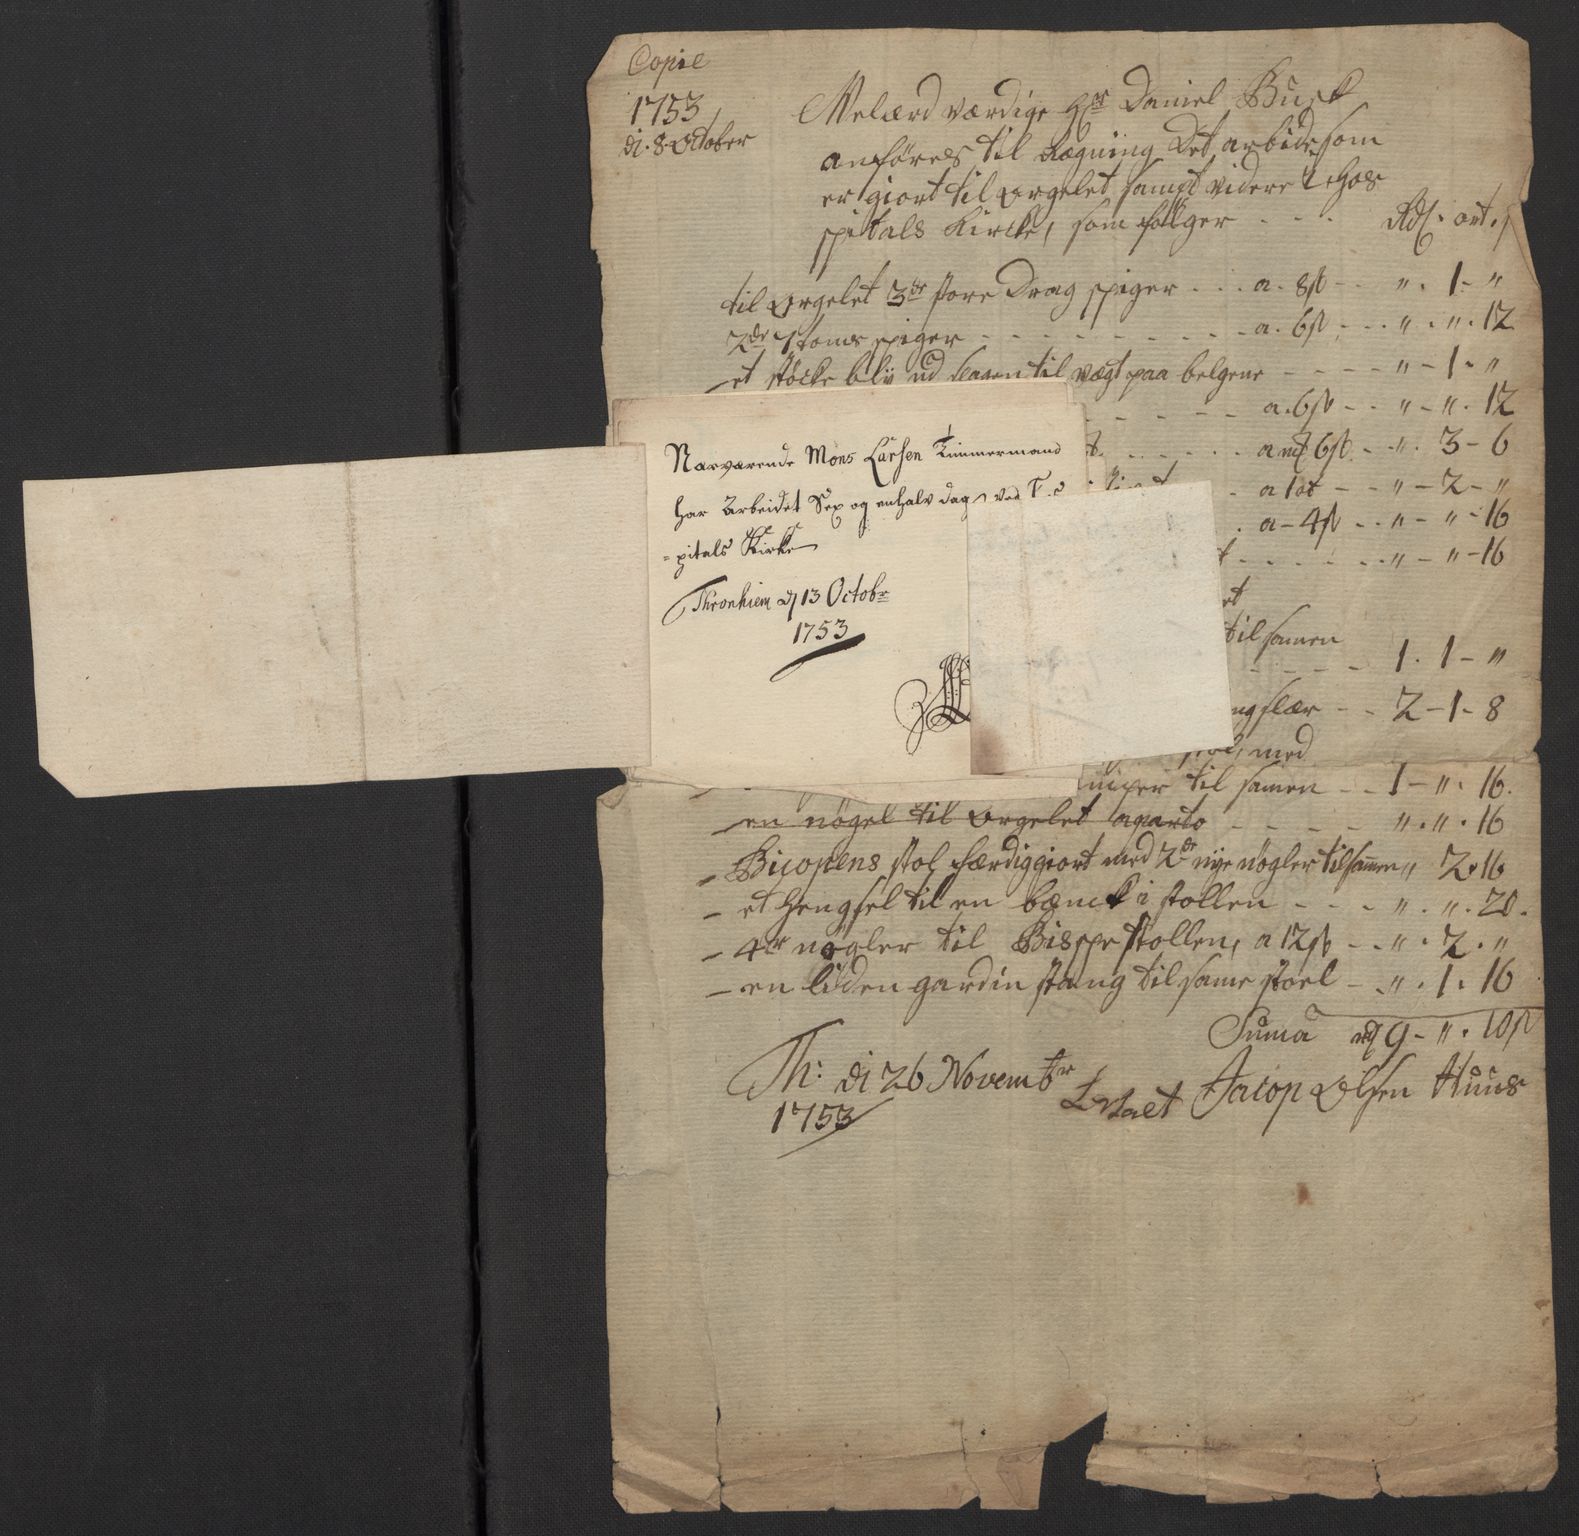 Copie
1753
di. 8 October
Welærd værdige Hr Daniel Busk
anföres til Rægning Det arbide som
er giort til orgelet sampt videre i Hos
spitals Kircke, som fölger - - - Rdl. ort. s
til orgelet 3de store Drag spiger - - - a. 8s - - " . 1 - "
2de spiger - - - a. 6s - - " . " . 12
et støcke bly ud slagen til vægt paa belgene - - - " - 1 - "
- - - a. 6s - - " - " . 12
- - - 6s - - " . 3 - 6
- - - a 1 ort - - " - 2 - "
. a - 4s - - " - " - 16
- - - " - " - 16
til samen
- - - 1 . 1 - "
- - 2 - 1 - 8
med
til samen - - 1 - " . 16.
en nögel til orgelet aparto - - - " . " . 16
Bicopens stol færdiggiort med 2de nye nögler tilsamen " 2 . 16
- et Hengsel til en bænck i stollen - - - " . " . 20.
- 4r nögler til Bisspe stollen, a 12s - - " . 2 . "
- en liden gardin stang til same stoel - - " . 1 . 16
Suma rd 9 - " . 10s
Th: di 26 Novembr
1753
Betalt Jacop Olsen Huus
Narvarende Mons Larsen Timmermand
har Arbeidet Sex og en halv dag ved
=pitals Kirke
Thronhiem d 13 Octobr
1753